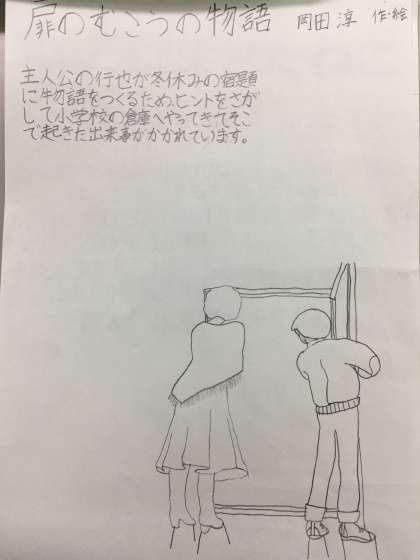 扉のむこうの物語 岡田淳 作・絵
主人公の行也が冬休みの宿題
に物語をつくるため、ヒントをさが
して小学校の倉庫へやってきてそこ
で起きた出来事がかかれています。